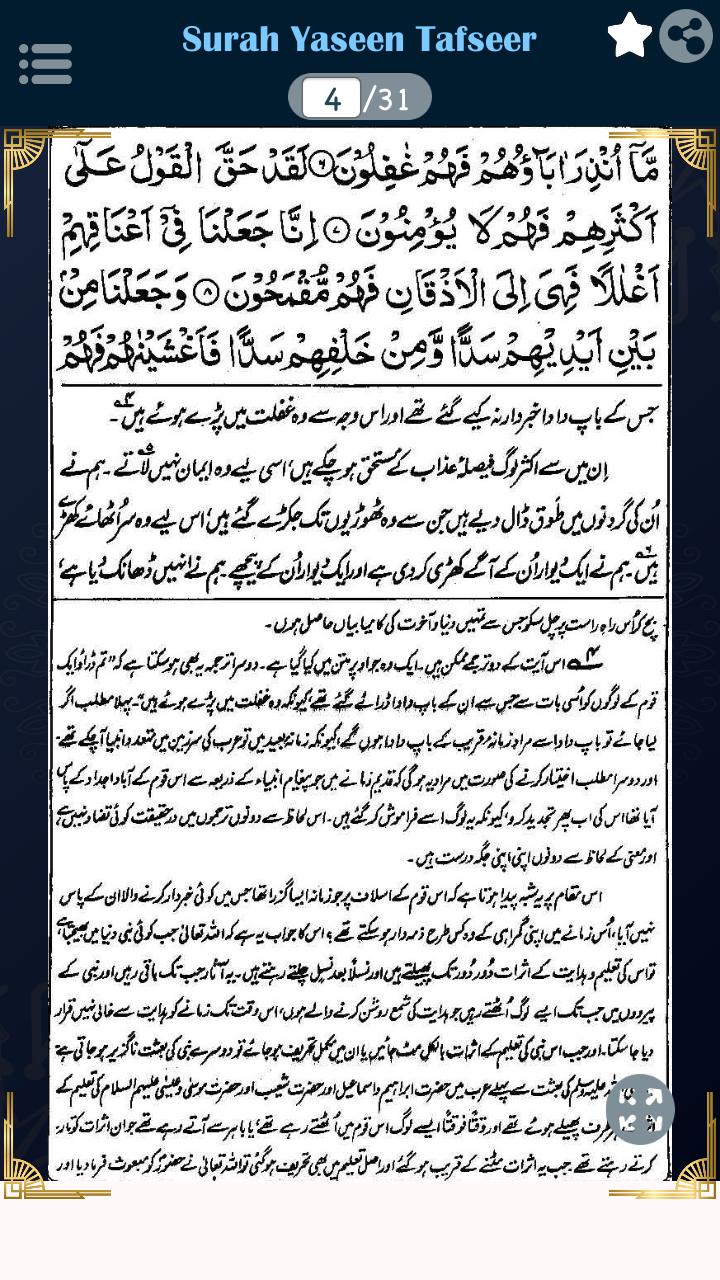 Surah Yaseen Tafseer
4 /31
مَّآ اُنْذِرَ اٰبَآؤُهُمْ فَهُمْ غٰفِلُوْنَ ۶ لَقَدْ حَقَّ الْقَوْلُ عَلٰٓى
اَكْثَرِهِمْ فَهُمْ لَا يُؤْمِنُوْنَ ۷ اِنَّا جَعَلْنَا فِىْٓ اَعْنَاقِهِمْ
اَغْلٰلًا فَهِىَ اِلَى الْاَذْقَانِ فَهُمْ مُّقْمَحُوْنَ ۸ وَجَعَلْنَا مِنْۢ
بَيْنِ اَيْدِيْهِمْ سَدًّا وَّمِنْ خَلْفِهِمْ سَدًّا فَاَغْشَيْنٰهُمْ فَهُمْ
جس کے باپ دادا خبردار نہ کیے گئے تھے اور اس وجہ سے وہ غفلت میں پڑے ہوئے ہیں۴۔
اِن میں سے اکثر لوگ فیصلۂ عذاب کے مستحق ہو چکے ہیں، اسی لیے وہ ایمان نہیں لاتے۵۔ ہم نے
اُن کی گردنوں میں طوق ڈال دیے ہیں جن سے وہ ٹھوڑیوں تک جکڑے گئے ہیں، اس لیے وہ سر اُٹھائے کھڑے
ہیں۶۔ ہم نے ایک دیوار اُن کے آگے کھڑی کر دی ہے اور ایک دیوار اُن کے پیچھے۔ ہم نے انہیں ڈھانک دیا ہے،
بچ کر اُس راہِ راست پر چل سکو جس سے تمہیں دنیا و آخرت کی کامیابیاں حاصل ہوں۔
۴ اس آیت کے دو ترجمے ممکن ہیں۔ ایک وہ جو اوپر متن میں کیا گیا ہے۔ دوسرا ترجمہ یہ بھی ہو سکتا ہے کہ "تم ڈراؤ ایک
قوم کے لوگوں کو اُسی بات سے جس سے ان کے باپ دادا ڈرائے گئے تھے، کیونکہ وہ غفلت میں پڑے ہوئے ہیں"۔ پہلا مطلب اگر
لیا جائے تو باپ دادا سے مراد زمانۂ قریب کے باپ دادا ہوں گے، کیونکہ زمانۂ بعید میں تو عرب کی سرزمین میں متعدد انبیا آ چکے تھے۔
اور دوسرا مطلب اختیار کرنے کی صورت میں مراد یہ ہو گی کہ قدیم زمانے میں جو پیغام انبیاء کے ذریعہ سے اس قوم کے آباو اجداد کے پاس
آیا تھا اس کی اب پھر تجدید کرو، کیونکہ یہ لوگ اسے فراموش کر گئے ہیں۔ اس لحاظ سے دونوں ترجموں میں درحقیقت کوئی تضاد نہیں ہے
اور معنی کے لحاظ سے دونوں اپنی اپنی جگہ درست ہیں۔
اس مقام پر یہ شبہ پیدا ہوتا ہے کہ اس قوم کے اسلاف پر جو زمانہ ایسا گزرا تھا جس میں کوئی خبردار کرنے والا ان کے پاس
نہیں آیا، اُس زمانے میں اپنی گمراہی کے وہ کس طرح ذمہ دار ہو سکتے تھے؟ اس کا جواب یہ ہے کہ اللہ تعالیٰ جب کوئی نبی دنیا میں بھیجتا ہے
تو اس کی تعلیم و ہدایت کے اثرات دُور دُور تک پھیلتے ہیں اور نسلاً بعد نسلٍ چلتے رہتے ہیں۔ یہ آثار جب تک باقی رہیں اور نبی کے
پیرووں میں جب تک ایسے لوگ اُٹھتے رہیں جو ہدایت کی شمع روشن کرنے والے ہوں، اس وقت تک زمانے کو ہدایت سے خالی نہیں قرار
دیا جا سکتا۔ اور جب اس نبی کی تعلیم کے اثرات بالکل مٹ جائیں یا ان میں مکمل تحریف ہو جائے تو دوسرے نبی کی بعثت ناگزیر ہو جاتی ہے
علیہ وسلم کی بعثت سے پہلے عرب میں حضرت ابراہیم و اسماعیل اور حضرت شعیب اور حضرت موسیٰ و عیسیٰ علیہم السلام کی تعلیم کے
طرف پھیلے ہوئے تھے اور وقتاً فوقتاً ایسے لوگ اس قوم میں اُٹھتے رہے تھے، یا باہر سے آتے رہے تھے جو ان اثرات کو تازہ
کرتے رہتے تھے۔ جب یہ اثرات مٹنے کے قریب ہو گئے اور اصل تعلیم میں بھی تحریف ہو گئی تو اللہ تعالیٰ نے حضورؐ کو مبعوث فرما دیا اور